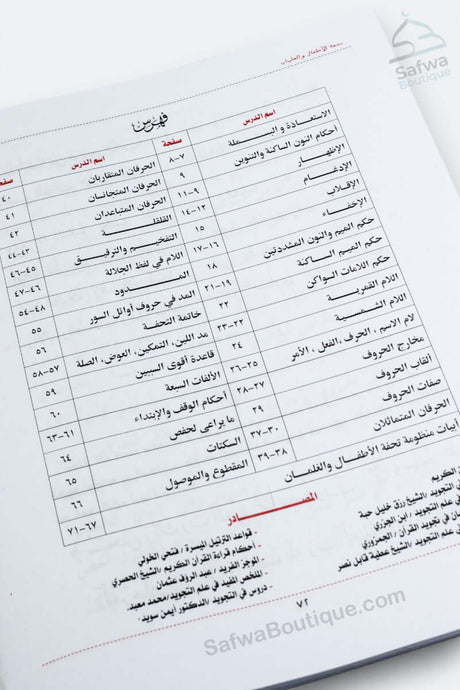 Safwa
Boutique
تحفة الأطفال والغلمان
فهرس
اسم الدرس
الاستعاذة و البسملة
أحكام النون الساكنة والتنوين
الإظهار
الإدغام
الإقلاب
الإخفاء
حكم الميم والنون المشددتين
حكم الميم الساكنة
حكم اللامات السواكن
اللام القمرية
اللام الشمسية
لام الاسم ، الحرف ،الفعل ، الأمر
مخارج الحروف
ألقاب الحروف
صفات الحروف
الحرفان المتماثلان
أبيات منظومة تحفة الأطفال والغلمان
صفحة
٧-٨
٩
٩-١١
١٢-١٤
١٥
١٦-١٧
١٨
١٩-٢١
٢٢
٢٢-٢٣
٢٤
٢٥-٢٦
٢٧-٢٨
٢٩
٣٠-٣٧
٣٨-٣٩
اسم الدرس
الحرفان المتقاربان
الحرفان المتجانسان
الحرفان المتباعدان
القلقلة
التفخيم والترقيق
اللام في لفظ الجلالة
المـــدود
المد في حروف أوائل السور
خاتمة التحفة
مد اللين، التمكين، العوض، الصلة
قاعدة أقوى السببين
الألفات السبعة
أحكام الوقف والإبتداء
ما يراعى لحفص
السكتات
المقطوع والموصول
صفحة
٤٠
٤١
٤٢
٤٣-٤٤
٤٥-٤٦
٤٦-٤٧
٤٨-٥٤
٥٥
٥٦
٥٧-٥٨
٥٩
٦٠
٦١-٦٣
٦٤
٦٥
٦٦
٦٧-٧١
المصــــادر
الكريم
في التجويد /الشيخ رزق خليل حبة
في علم التجويد / ابن الجزري
في تجويد القرآن / الجمزوري
علم التجويد /الشيخ عطية قابل نصر
- قواعد الترتيل الميسرة / فتحي الخولي
- أحكام قراءة القرآن الكريم /الشيخ الحصري
- الموجز الفريد / عبد الرؤف عثمان
- الملخص المفيد في علم التجويد/محمد معبد
- دروس في التجويد /الدكتور أيمن سويد
٧٢
SafwaBoutique.com